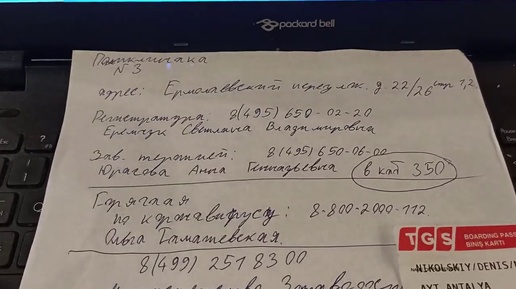 packard bell
Поликлиника
N 3
адрес: Ермолаевский переулок. д. 22/26 стр. 1,2
Регистратура: 8(495) 650-02-20
Еремчук Светлана Владимировна
Зав. терапией: 8(495) 650-06-00
Юрасова Анна Геннадьевна в каб 350
Горячая
по коронавирусу: 8-800-2000-112.
Ольга
8(499) 251 83 00
TGS BOARDING PASS
BİNİŞ KARTI
NIKOLSKIY/DENIS/
AYT ANTALYA